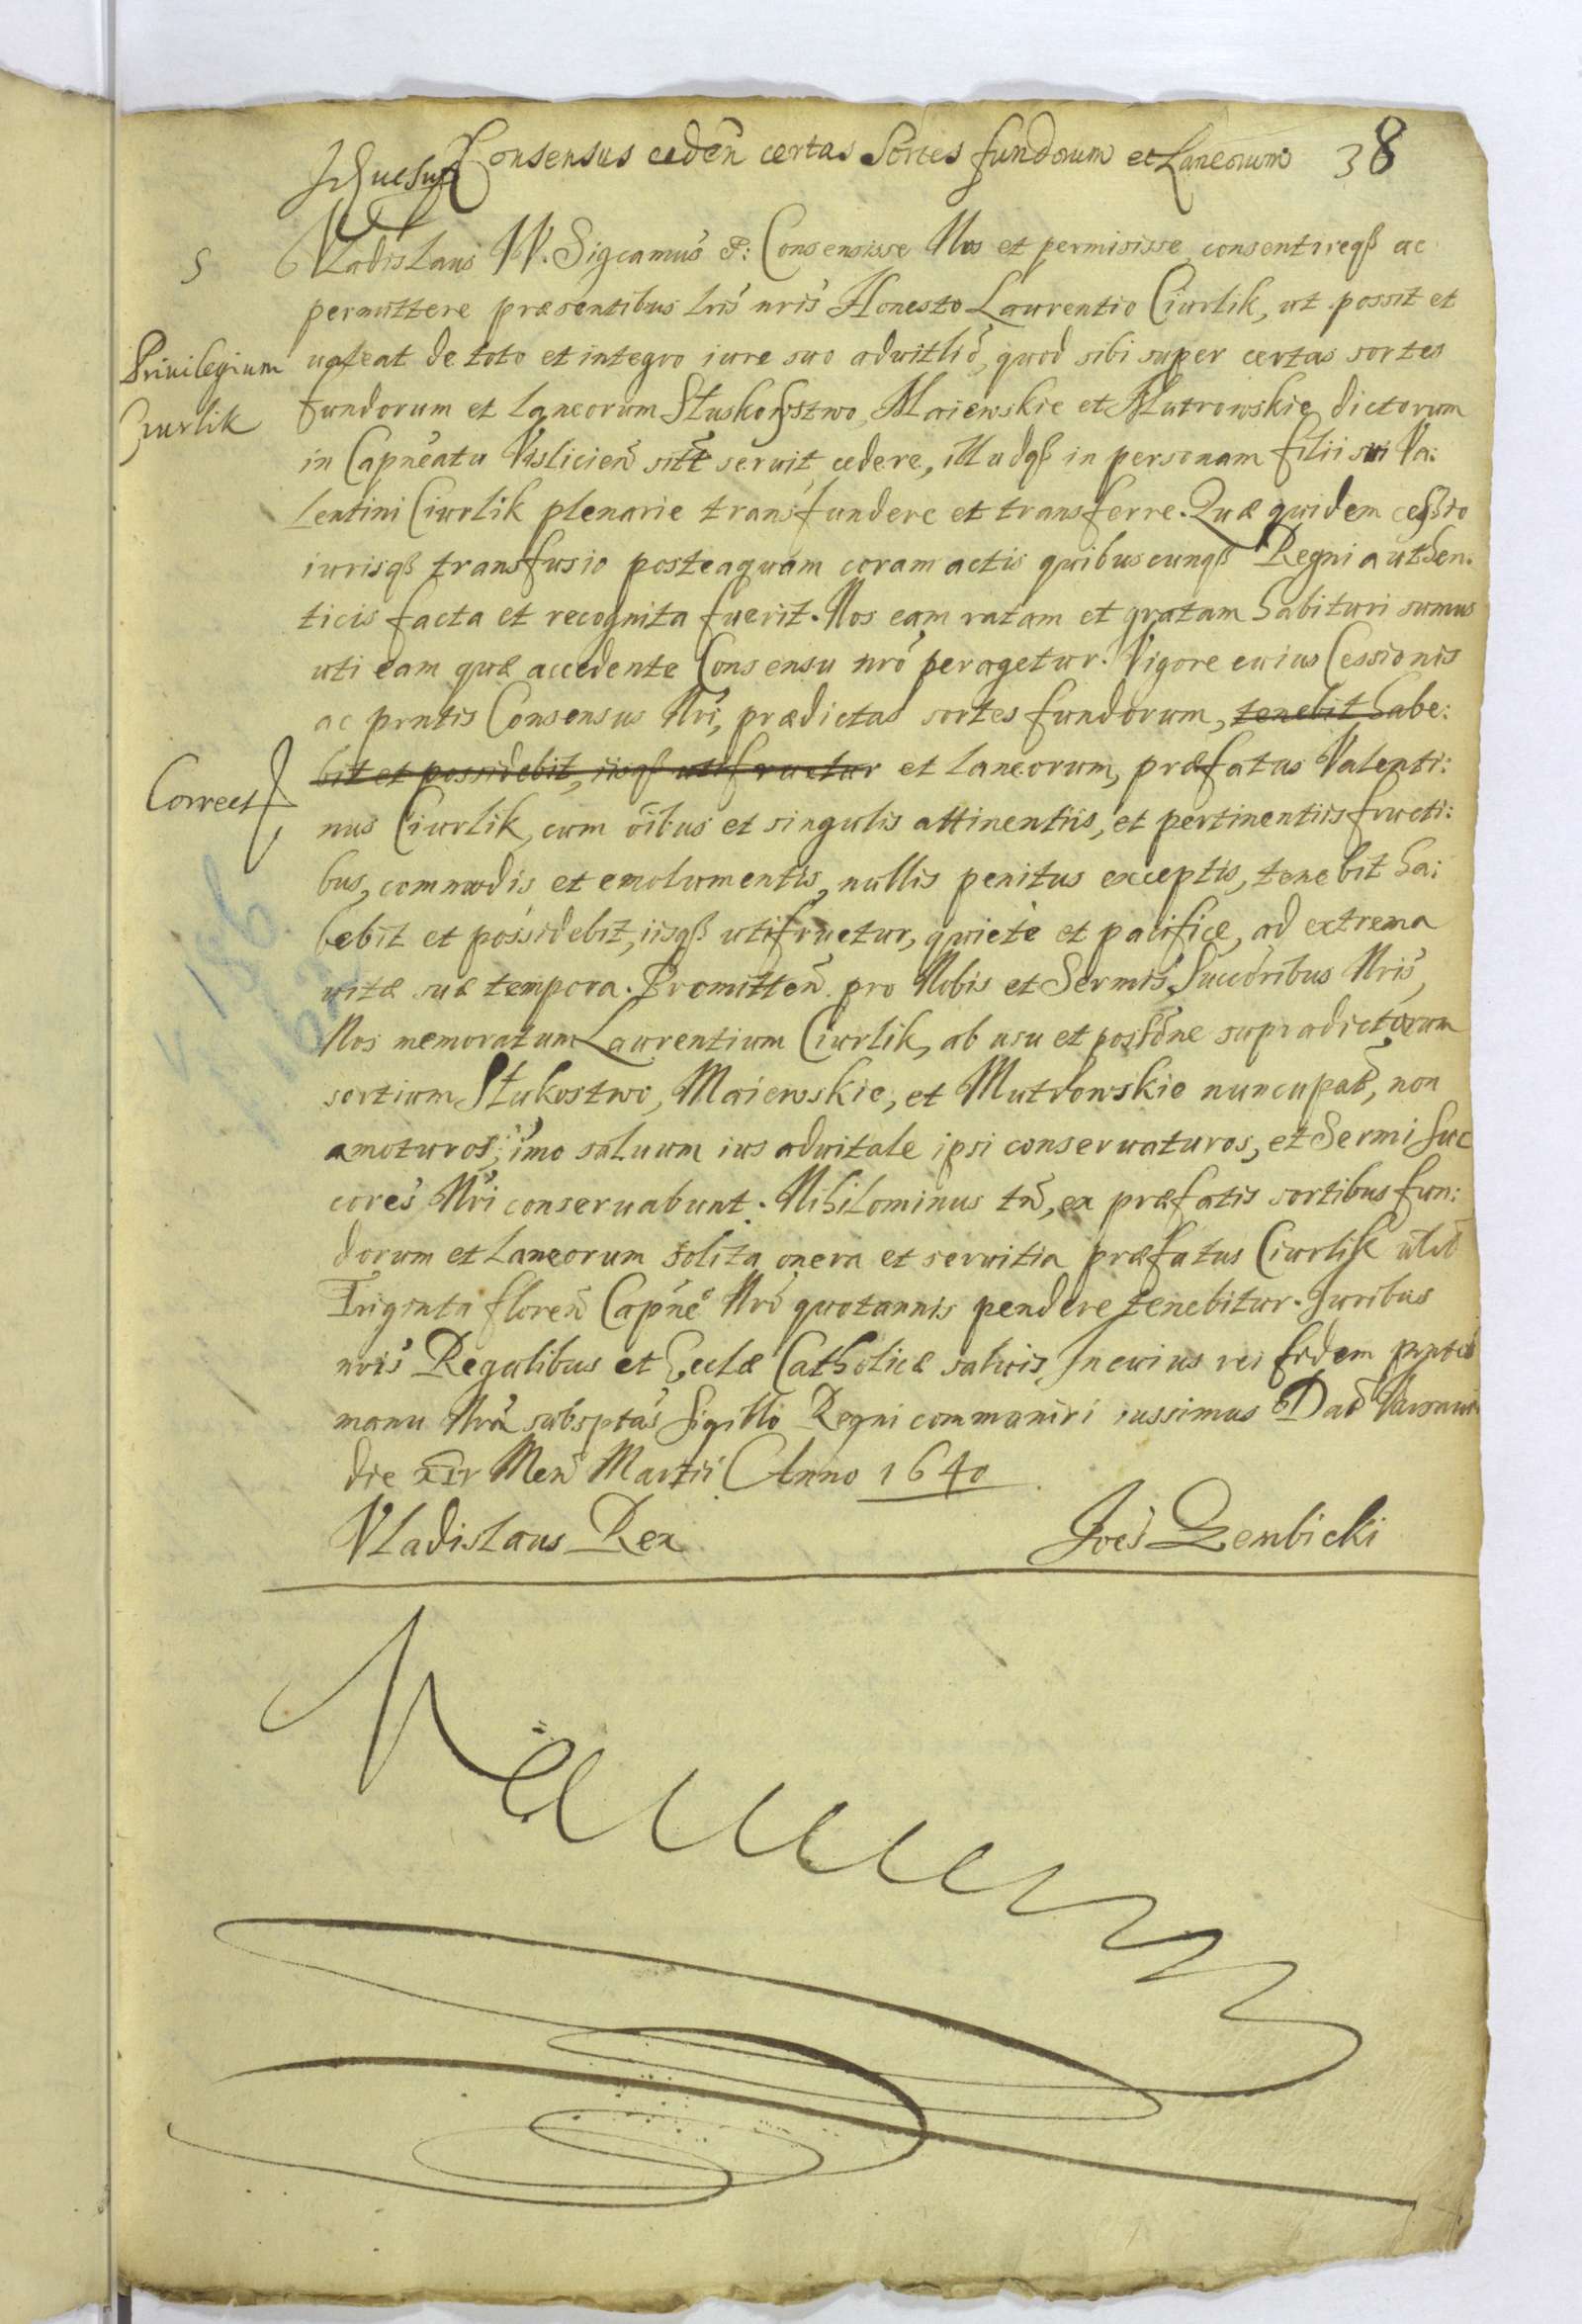 Consensus cedeñ certas Sortes fundorum et Laneorum 38
5 Vladislaus IV. Sigcamus &: Consensisse Nos et permisisse, consentireqß ac
permittere præsentibus lris nris Honesto Laurentio Ciurlik, ut possit et
Privilegium ualeat de toto et integro iure suo aduitliõ, quod sibi super certas sortes
Czurlik fundorum et laneorum Słuskowstwo, Maiewskie et Mutrowskie dictorum
in Capneatu Vislicieñ sitt seruit cedere, illudqß in personam filii sui Va:
lentini Ciurlik plenarie transfundere et transferre. Quæ quidem cessio
iurisqß transfusio posteaquam coram actis quibuscunqß Regni authen:
ticis facta et recognita fuerit. Nos eam ratam et gratam habituri sumus
uti eam quæ accedente Consensu nrõ peragetur. Vigore cuius Cessionis
ac prntis Consensus Nri, prædictas sortes fundorum, tenebit habe:
bit et possidebit, iisqß utifruetur et laneorum, præfatus Valenti:
Correct
nus Ciurlik, cum oibus et singulis attinentiis, et pertinentiis fructi:
bus, commodis et emolumentis, nullis penitus exceptis, tenebit ha:
bebit et possidebit, iisqß utifruetur, quiete et pacifice, ad extrema
uitæ suæ tempora. Promitteñ pro Nobis et Sermis Succoribus Nris,
Nos memoratum Laurentium Ciurlik, ab usu et possõne supradictorum
sortium Stukostwo, Maiewskie, et Mutrowskie nuncupat, non
amoturos, imo saluum ius aduitale ipsi conseruaturos, et Sermi Suc
cores Nri conseruabunt. Nihilominus tñ, ex præfatis sortibus fun:
dorum et laneorum solita onera et seruitia præfatus Ciurlik
Triginta floreñ Capneo Nrõ quotannis pendere tenebitur. Iuribus
nris Regalibus et Eccłæ Catholicæ saluis, In cuius rei fidem prntes
manu Nra subsptas Sigillo Regni communiri iussimus Dat Varsauiæ
die Meñ Martii Anno 1640
Vladislaus Rex Joes Gembicki